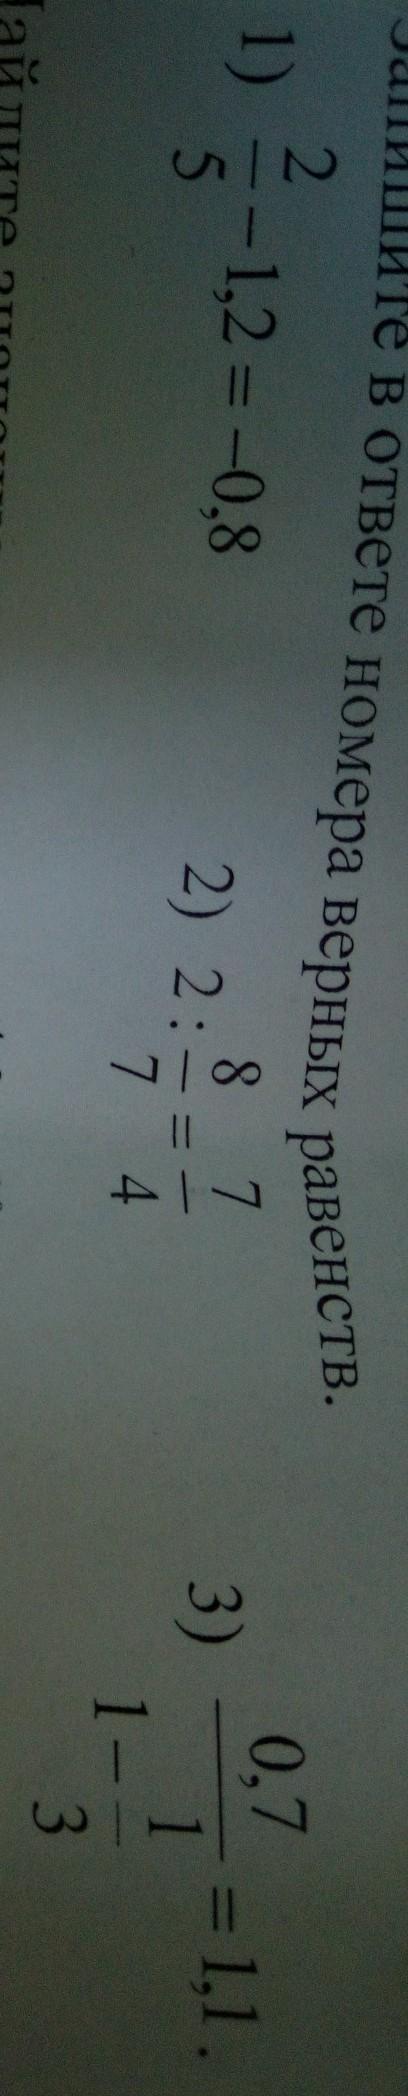 Запишите в ответе номера верных равенств.
1) 2/5 − 1,2 = −0,8 2) 2 : 8/7 = 7/4 3) 0,7/(1 − 1/3) = 1,1.